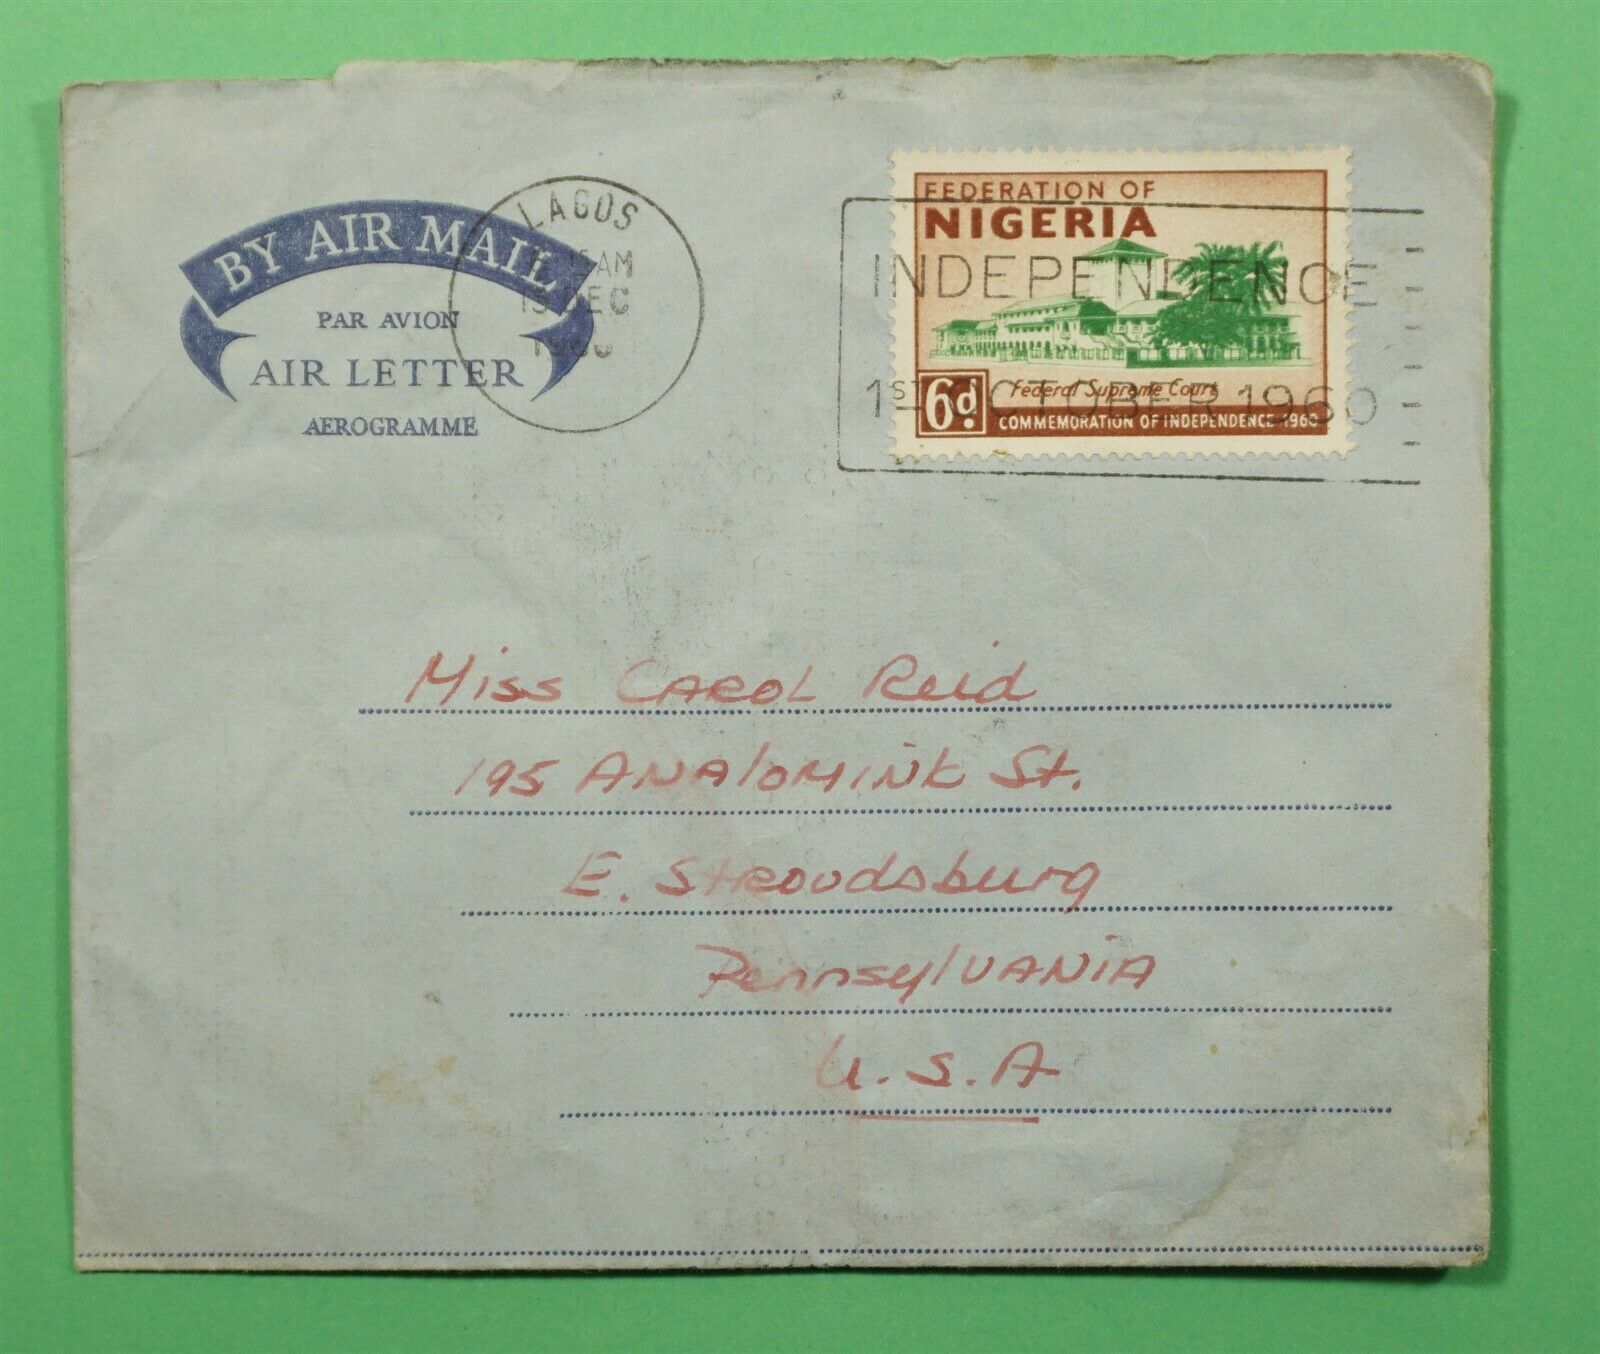 BY AIR MAIL
PAR AVION
AIR LETTER
AEROGRAMME
LAGOS
AM
15 DEC
1960
FEDERATION OF
NIGERIA
Federal Supreme Court
6d.
COMMEMORATION OF INDEPENDENCE 1960
INDEPENDENCE
1ST OCTOBER 1960
Miss CAROL Reid
195 ANAlOMINK St.
E. StRoudsburg
PennsylVANIA
U.S.A